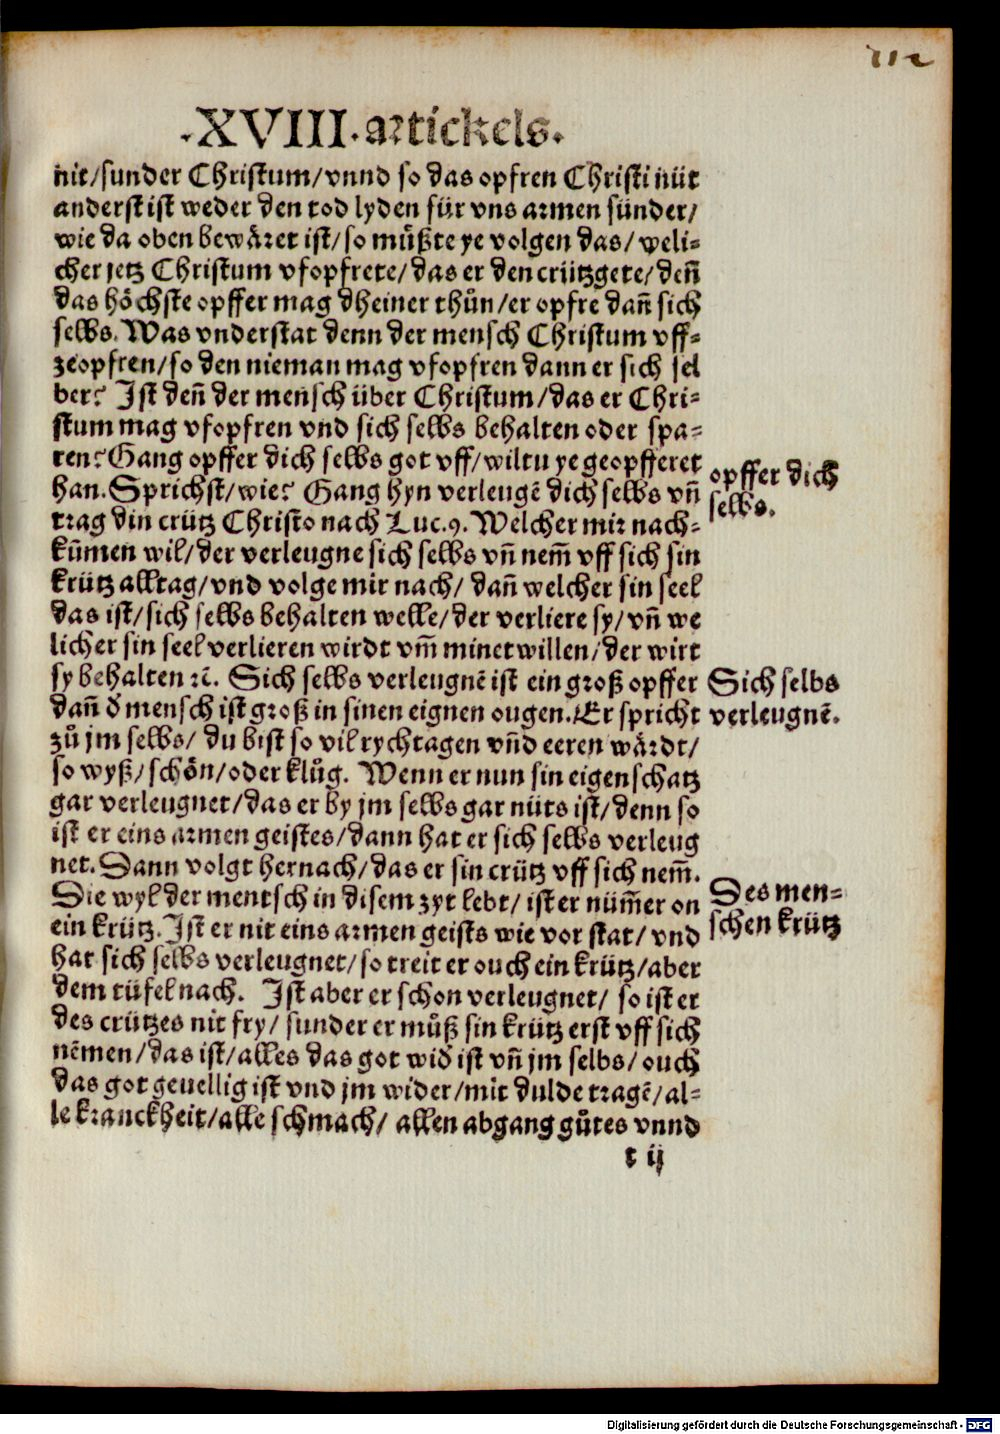 112
·XVIII·artickels.
nit/sunder Christum/vnnd so das opfren Christi nüt
anderst ist weder den tod lyden für vns armen sünder/
wie da oben bewäret ist/so müßte ye volgen das/weli-
cher jetz Christum vfopfrete/das er den crützgete/den̄
das höchste opffer mag dheiner thůn/er opfre dan̄ sich
selbs. Was vnderstat denn der mensch Christum vff-
zeopfren/so den nieman mag vfopfren dann er sich sel
ber? Ist den̄ der mensch über Christum/das er Chri-
stum mag vfopfren vnd sich selbs behalten oder spa-
ren? Gang opffer dich selbs got vff/wiltu ye geopfferet
opffer dich
selbs.
han. Sprichst/wie? Gang hyn verleugē dich selbs vn̄
trag din crütz Christo nach Luc.9. Welcher mir nach-
kūmen wil/der verleugne sich selbs vn̄ nem̄ vff sich sin
krütz alltag/vnd volge mir nach/ dan̄ welcher sin seel
das ist/sich selbs behalten welle/der verliere sy/vn̄ we
licher sin seel verlieren wirdt vm̄ minet willen/der wirt
sy behalten ꝛc̄. Sich selbs verleugnē ist ein groß opffer
Sich selbs
verleugnē.
dan̄ d̓ mensch ist groß in sinen eignen ougen. Er spricht
zů jm selbs/ du bist so vil rychtagen vn̄d eeren wärdt/
so wyß/schön/oder klůg. Wenn er nun sin eigenschatz
gar verleugnet/das er by jm selbs gar nüts ist/denn so
ist er eins armen geistes/dann hat er sich selbs verleug
net. Dann volgt hernach/das er sin crütz vff sich nem̄.
Die wyl der mentsch in disem zyt lebt/ ist er nüm̄er on
Des men-
schen krütz
ein krütz. Ist er nit eins armen geists wie vor stat/ vnd
hat sich selbs verleugnet/so treit er ouch ein krütz/aber
dem tüfel nach. Ist aber er schon verleugnet/ so ist er
des crützes nit fry/ sunder er můß sin krütz erst vff sich
nēmen/das ist/alles das got wid̓ ist vn̄ jm selbs/ ouch
das got geuellig ist vnd jm wider/mit dulde tragē/al-
le kranckheit/alle schmach/ allen abgang gůtes vnnd
t ij
Digitalisierung gefördert durch die Deutsche Forschungsgemeinschaft - DFG